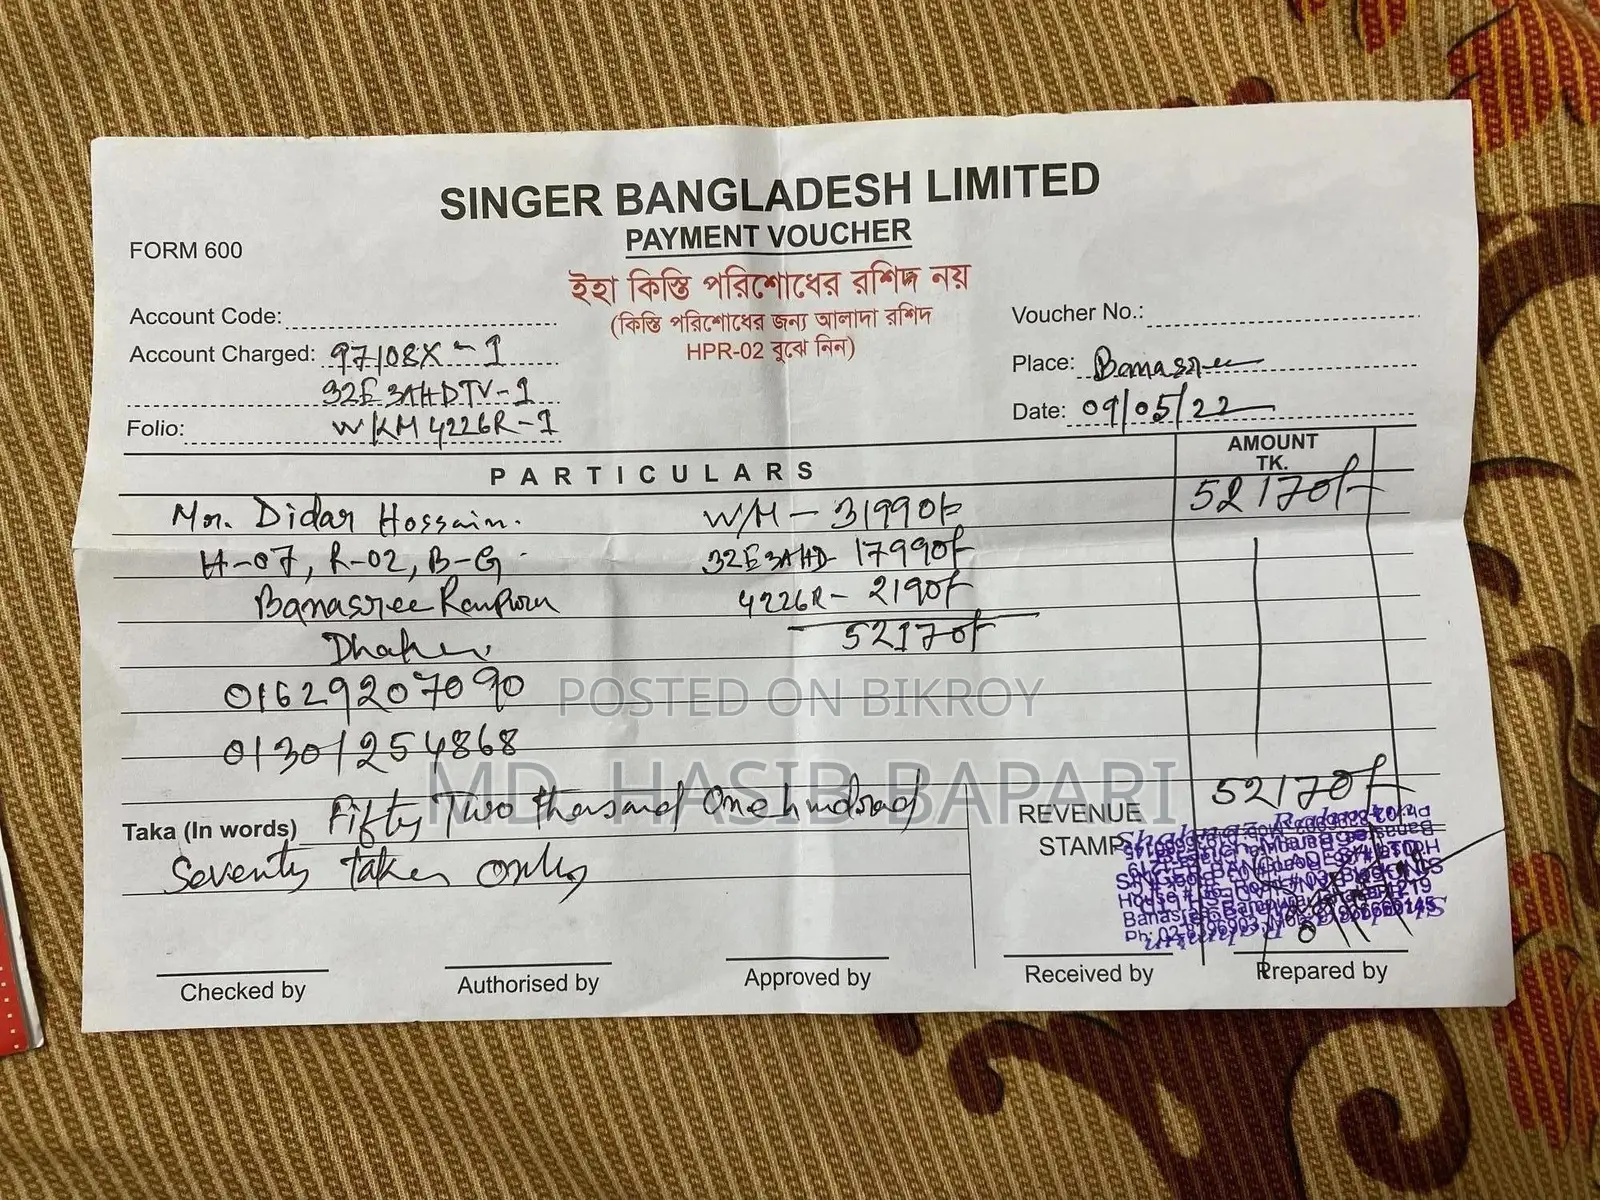 SINGER BANGLADESH LIMITED
PAYMENT VOUCHER
FORM 600
ইহা কিস্তি পরিশোধের রশিদ নয়
(কিস্তি পরিশোধের জন্য আলাদা রশিদ
HPR-02 বুঝে নিন)
Account Code:
Account Charged: 97108X-1
32E3AHDTV-1
Folio: WKM4226R-1
Voucher No.:
Place: Banasree
Date: 09/05/22
PARTICULARS
AMOUNT
TK.
Mr. Didar Hossain. W/M - 31990/- 52170/-
H-07, R-02, B-G 32E3AHD- 17990/-
Banasree Rampura 4226R- 2190/-
Dhaka 52170/-
01629207090
01301254868
52170/-
Taka (In words) Fifty Two thousand One hundred
Seventy taka only
REVENUE
STAMP
Checked by
Authorised by
Approved by
Received by
Prepared by
POSTED ON BIKROY
MD. HASIB BAPARI